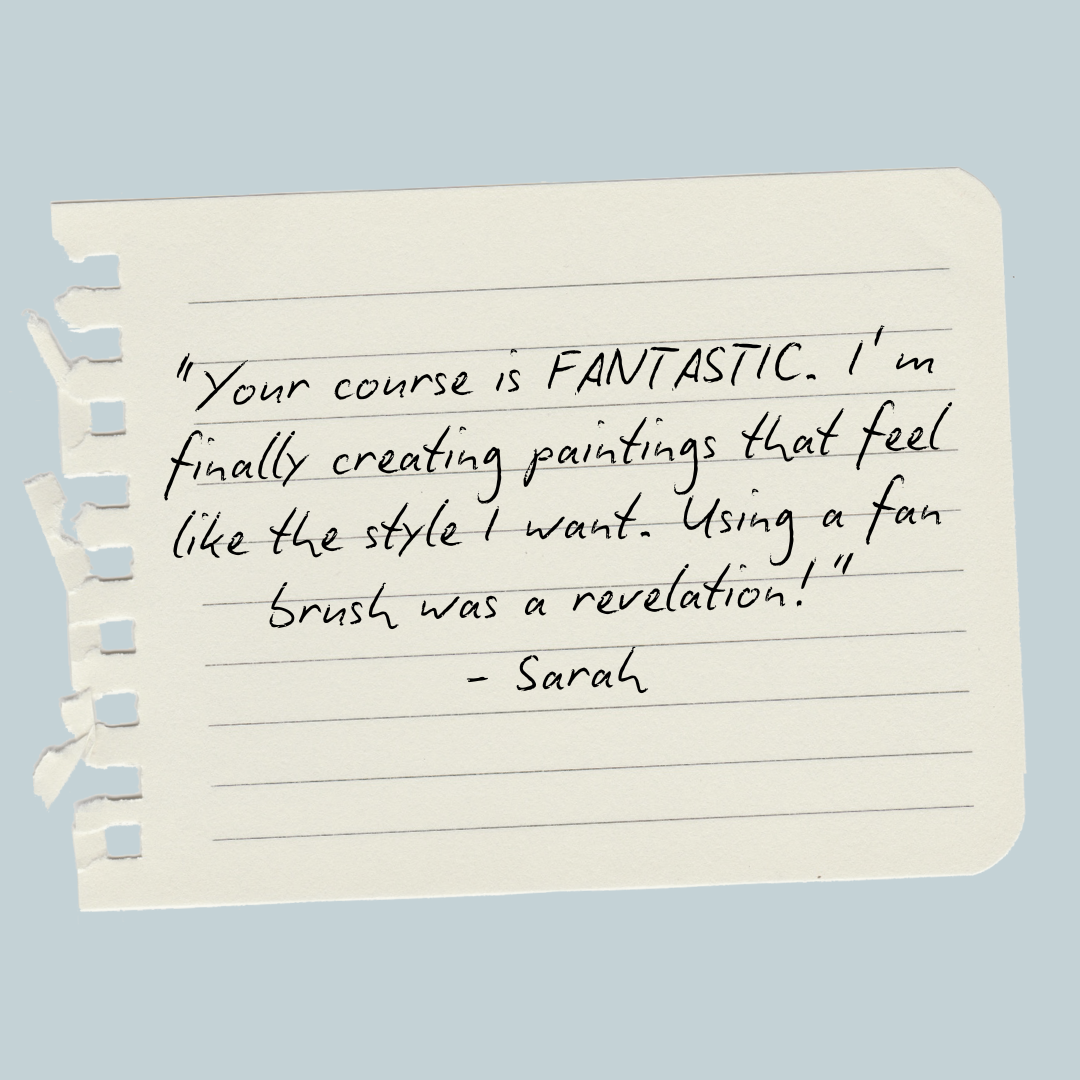 "Your course is FANTASTIC. I'm
finally creating paintings that feel
like the style I want. Using a fan
brush was a revelation!"
- Sarah